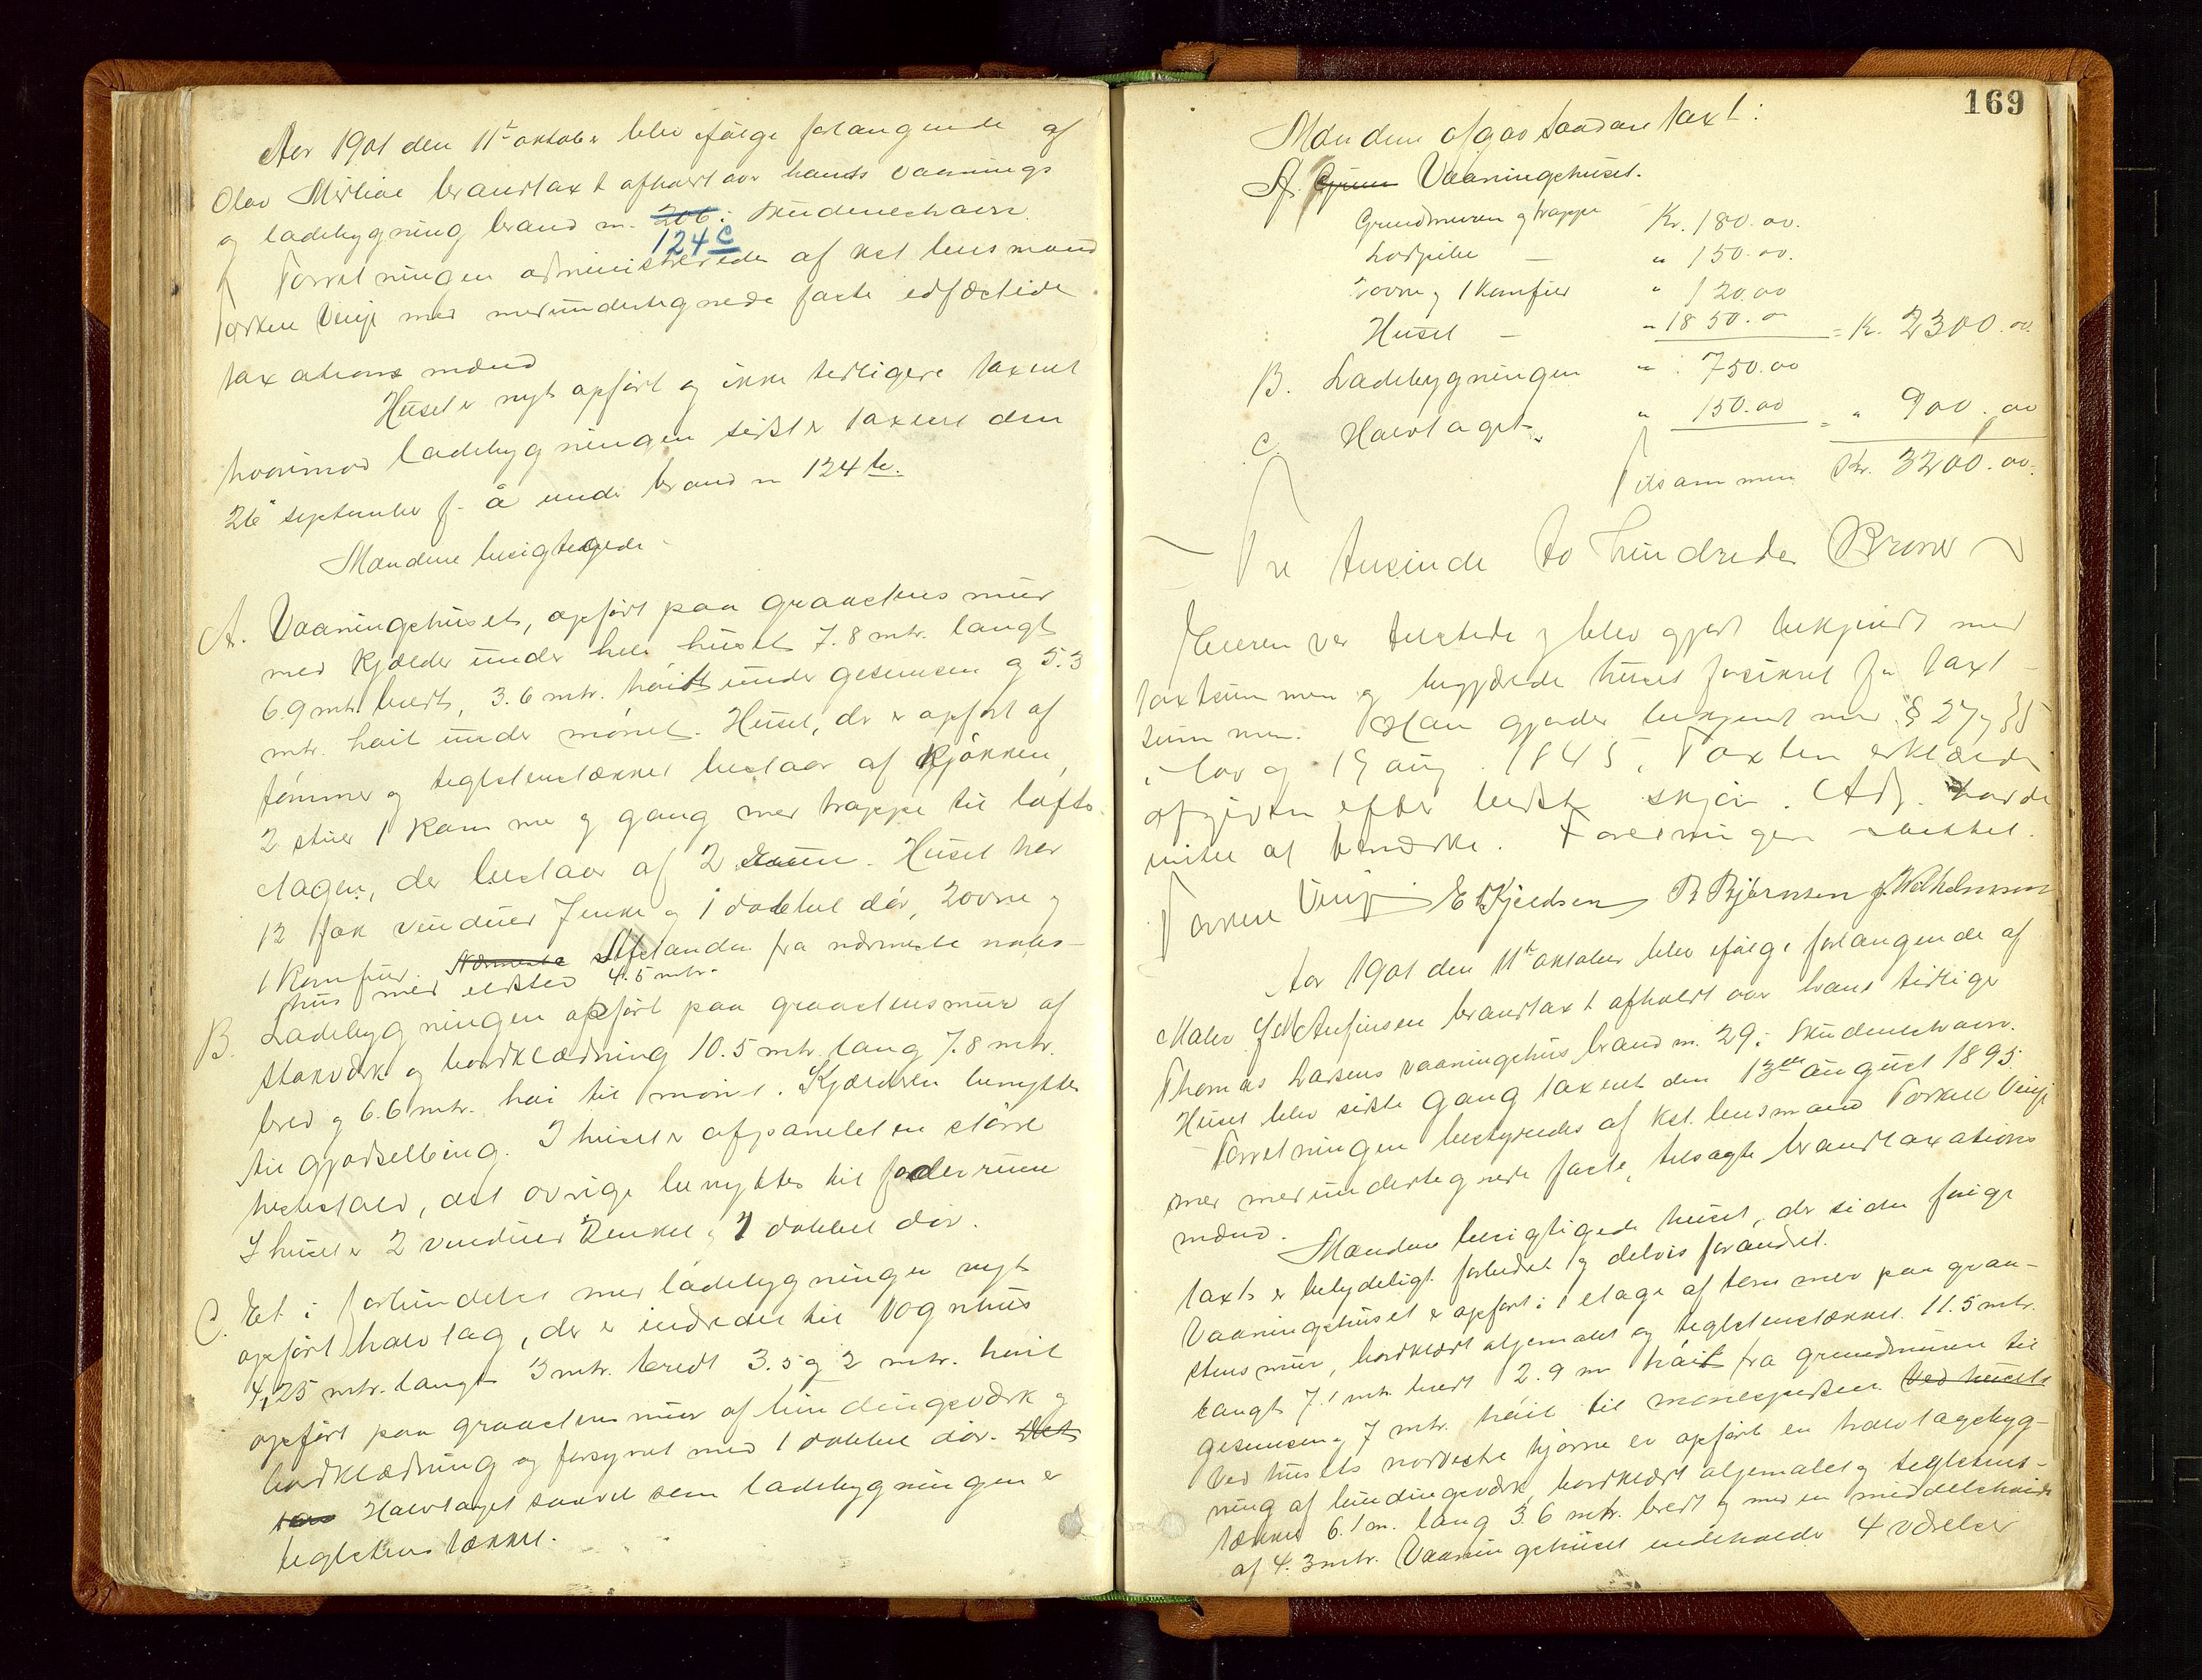 Aar 1901 den 11te oktober blev ifølge forlangende af
Olav Mirliae brandtaxt afholdt over hands vaanings
og ladebygning brand no. 206 i Skudeneshavn.
124 c
Forretningen administreredes af kst lensmand
Torkell Vinje med medundertegnede faste edfæstede
taxations mænd
Huset er nyt opført og ikke tidligere taxeret
hvorimod ladebygningen sidst er taxeret den
26 september f. å under brand no 124 b.
Mændene besigtegede
A. Vaaningshuset, opført paa graastens mur
med kjælder under hele huset 7.8 mtr. langt
6.9 mtr. bredt, 3.6 mtr. høidt under gesimsen og 5.3
mtr. høit under mønet. Huset, der er opført af
tømmer og teglstenstækket bestaar af kjøkken,
2 stuer 1 kammer og gang med trappe til lofts
etagen, der bestaar af 2 rum. Huset har
12 fak vinduer 7 enkle og 1 dobbel dør, 2 ovne og
1 komfur. Nærmeste Afstanden fra nærmeste nabo-
hus med ildsted 4.5 mtr.
B. Ladebygningen opført paa graastensmur af
stavværk og bordklædning 10.5 mtr. lang 7.8 mtr.
bred og 6.6 mtr. høi til mønet. Kjælderen benyttes
til gjødselbing. I huset er afpanelet en større
hestestald, det øvrige benyttes til foderrum
I huset er 2 vinduer 2 enkel og 1 dobbel dør.
C. Et i forbindelse med ladebygningen nyt
opført halvtag, der er indredet til vognhus
4,25 mtr. langt 3 mtr. bredt 3.5 og 2 mtr. høit
opført paa graastens mur af bindingsværk og
bordklædning og forsynet med 1 dobbel dør. Det
Halvtaget saavel som ladebygningen er
teglstenstækket.
169
Mændene afgav saadan taxt:
A. Grun Vaaningshuset.
Grundmuren og trappe Kr. 180.00.
Lodpibe — " 150.00.
2 ovne og 1 komfur " 120.00
Huset — " 1850.00 = Kr. 2300.00
B. Ladebygningen " 750.00
C. Halvtaget " 150.00 = " 900.00
Tilsammen Kr. 3200.00.
Tre tusinde to hundrede Kroner
Eieren var tilstede og blev gjort bekjendt med
taxtsummen og begjærede huset forsikret for taxt-
summen. Han gjordes bekjent med § 27 og 35
i lov og 19 aug. 1845. Taxten erklæredes
afgiven efter bedste skjøn. Adv. havde
intet at bemærke. Forretningen sluttet.
Torkell Vinje E Kjeldsen B Bjørnsen J. Wilhelmsen
Aar 1901 den 11te oktober blev ifølge forlangende af
Maler J M Anfinsen brandtaxt afholdt over hans tidlige
Thomas Larsens vaaningshus brand no. 29 i Skudeneshavn.
Huset blev sidste gang taxeret den 13de august 1895.
Forretningen bestyredes af kst. lensmand Torkell Vinje
med medundertegnede faste, tilsagte brandtaxations
mænd.
Mændene besigtigede huset, der siden forige
taxt er betydeligt forbedret og delvis forandret.
Vaaningshuset er opført i 1 etage af tømmer paa graa-
stens mur, bordklædt oljemalet og teglstenstækket. 11.5 mtr.
langt 7.1 mtr. bredt 2.9 m høit fra grundmuren til
gesimsen og 7 mtr. høit til mønespidsen. Ved husets
Ved husets nordøste hjørne er opført en halvtagsbyg-
ning af bindingsværk, bordklædt oljemalet og teglstens-
tækket 6.1 m. lang 3.6 mtr. bredt og med en middelshøide
af 4.3 mtr. Vaaningshuset indeholder 4 værelser